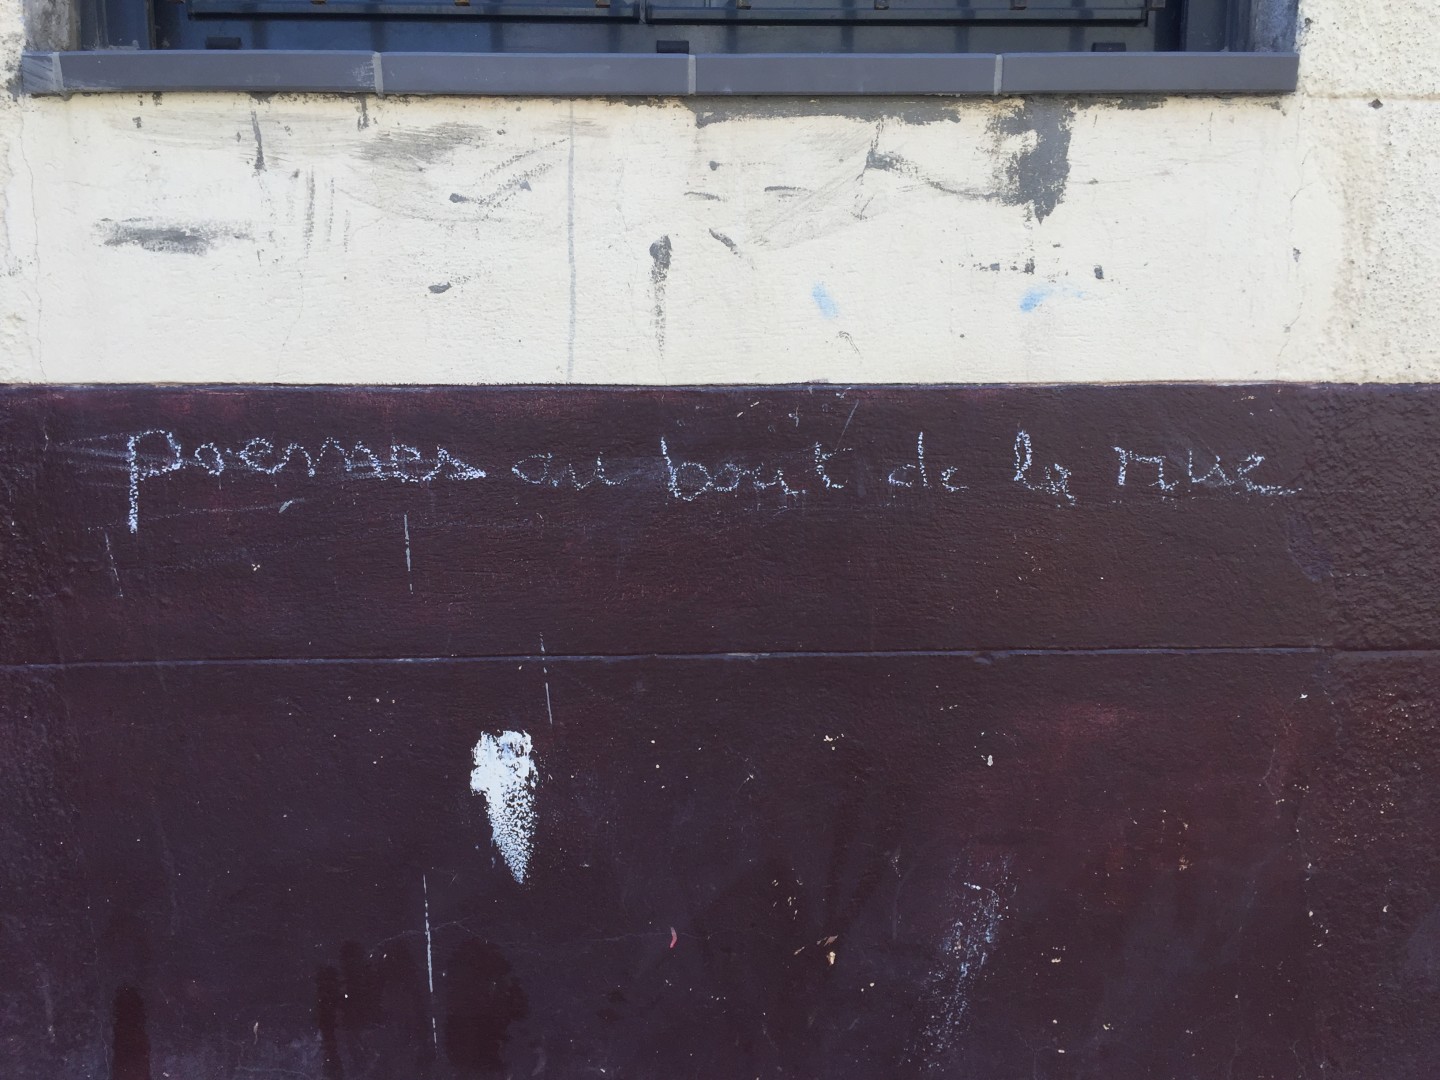 poemes au bout de la rue